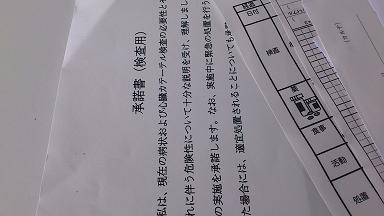 承諾書（検査用）
私は、現在の病状および心臓カテーテル検査の必要性とそ
れに伴う危険性について十分な説明を受け、理解しまし
の実施を承諾します。なお、実施中に緊急の処置を行う
た場合には、適宜処置されることについても
日付
検査
薬
食事
活動
処置